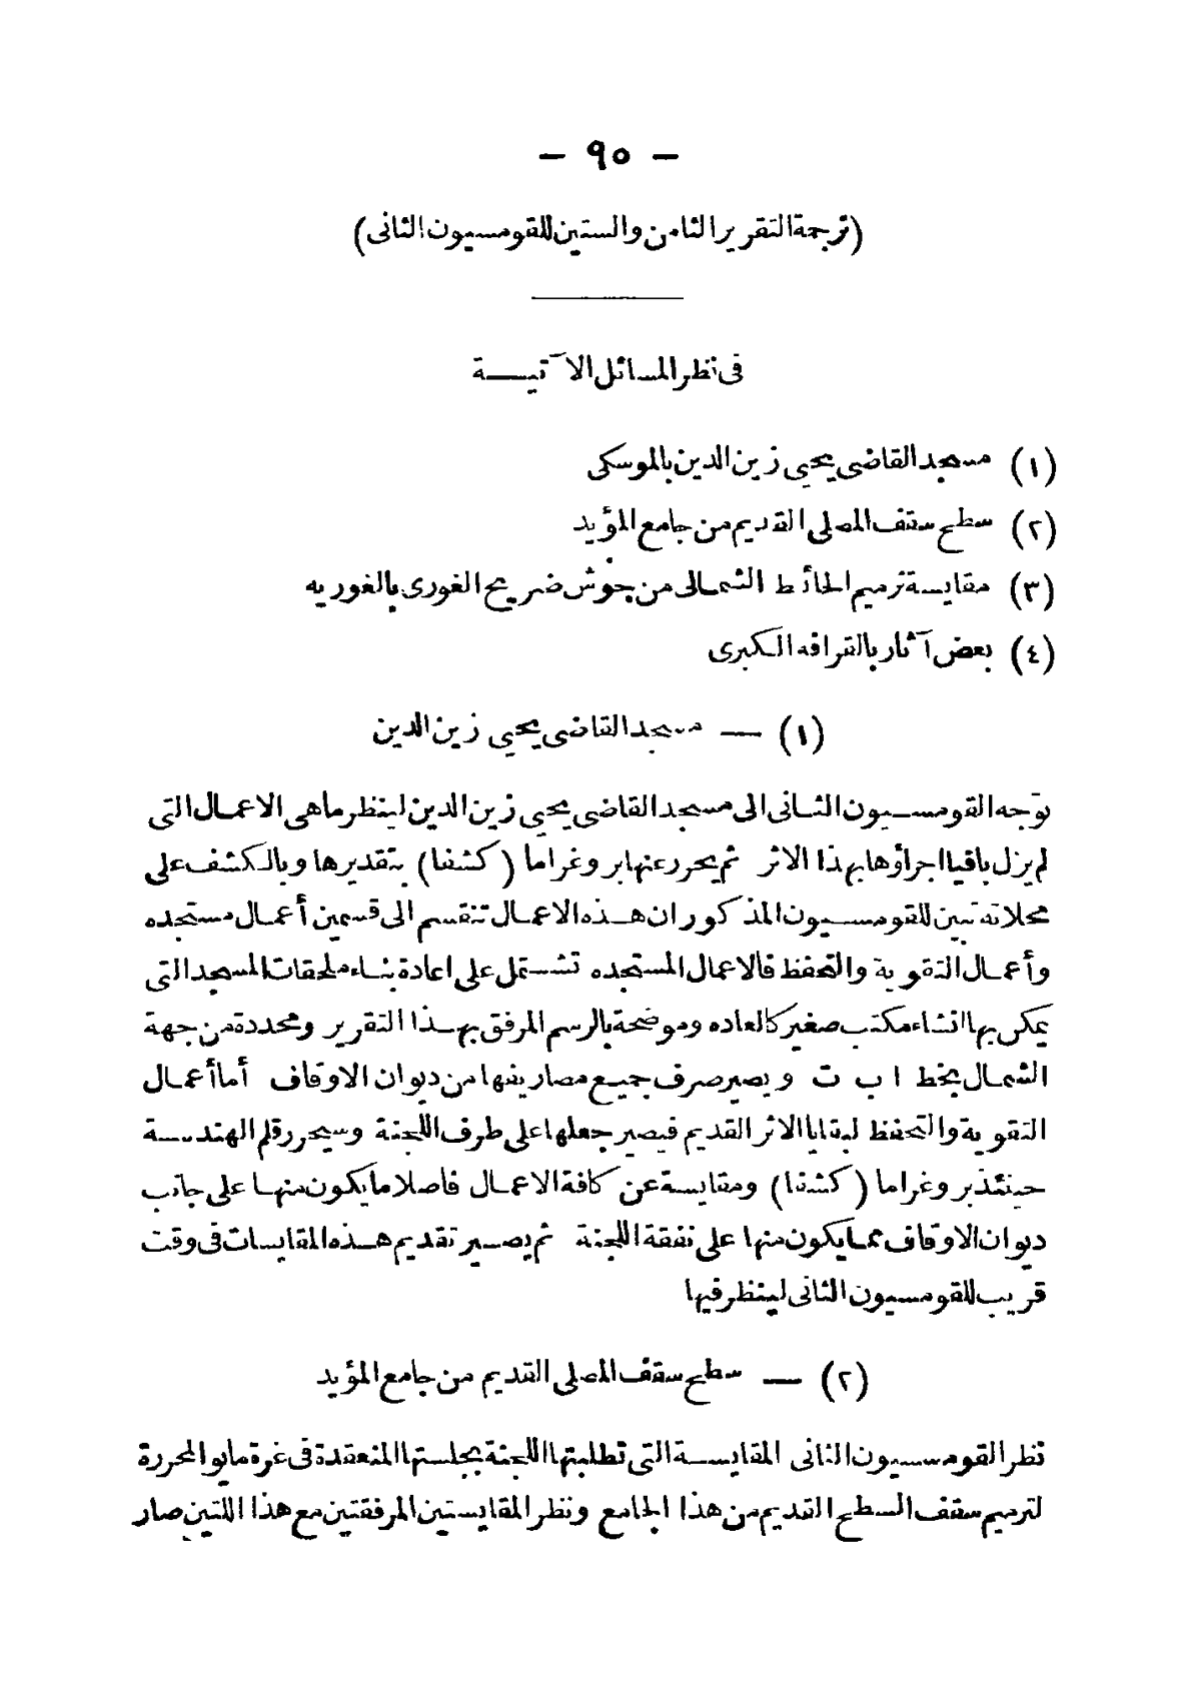 — ٩٥ —
(ترجمة التقرير الثامن والستين للقومسيون الثانى)
فى نظر المسائل الآتيــة
(١) مسجد القاضى يحيى زين الدين بالموسكى
(٢) سطح سقف المصلى القديم من جامع المؤيد
(٣) مقايسة ترميم الحائط الشمالى من حوش ضريح الغورى بالغوريه
(٤) بعض آثار بالقرافه الكبرى
(١) — مسجد القاضى يحيى زين الدين
توجه القومسيون الثانى الى مسجد القاضى يحيى زين الدين لينظر ماهى الاعمال التى
لم يزل باقيا اجراؤها بهذا الاثر ثم يحرر عنها بروغراما (كشفا) بتقديرها وبالكشف على
محلاته تبين للقومسيون المذكور ان هذه الاعمال تنقسم الى قسمين أعمال مستجده
وأعمال التقوية والتحفظ فالاعمال المستجده تشتمل على اعادة بناء ملحقات المسجد التى
يمكن بها انشاء مكتب صغير كالعاده وموضحة بالرسم المرفق بهذا التقرير ومحددة من جهة
الشمال بخط ا ب ت ويصير صرف جميع مصاريفها من ديوان الاوقاف أما أعمال
التقوية والتحفظ لبقايا الاثر القديم فيصير جعلها على طرف اللجنة وسيحرر قلم الهندسة
حينئذ بروغراما (كشفا) ومقايسة عن كافة الاعمال فاصلا ما يكون منها على جانب
ديوان الاوقاف مما يكون منها على نفقة اللجنة ثم يصير تقديم هذه المقايسات فى وقت
قريب للقومسيون الثانى لينظر فيها
(٢) — سطح سقف المصلى القديم من جامع المؤيد
نظر القومسيون الثانى المقايسة التى تطلبتها اللجنة بجلستها المنعقدة فى غرة مايو المحررة
لترميم سقف السطح القديم من هذا الجامع ونظر المقايستين المرفقتين مع هذا اللتين صار